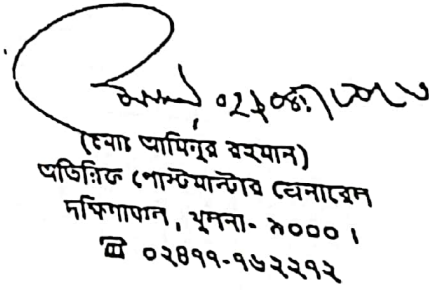 ০২।০৪।২০২০
(মোঃ আমিনুর রহমান)
অতিরিক্ত পোস্টমাস্টার জেনারেল
দক্ষিণাঞ্চল, খুলনা- ৯০০০।
☎ ০২৪৭৭-৭৬২২৭২